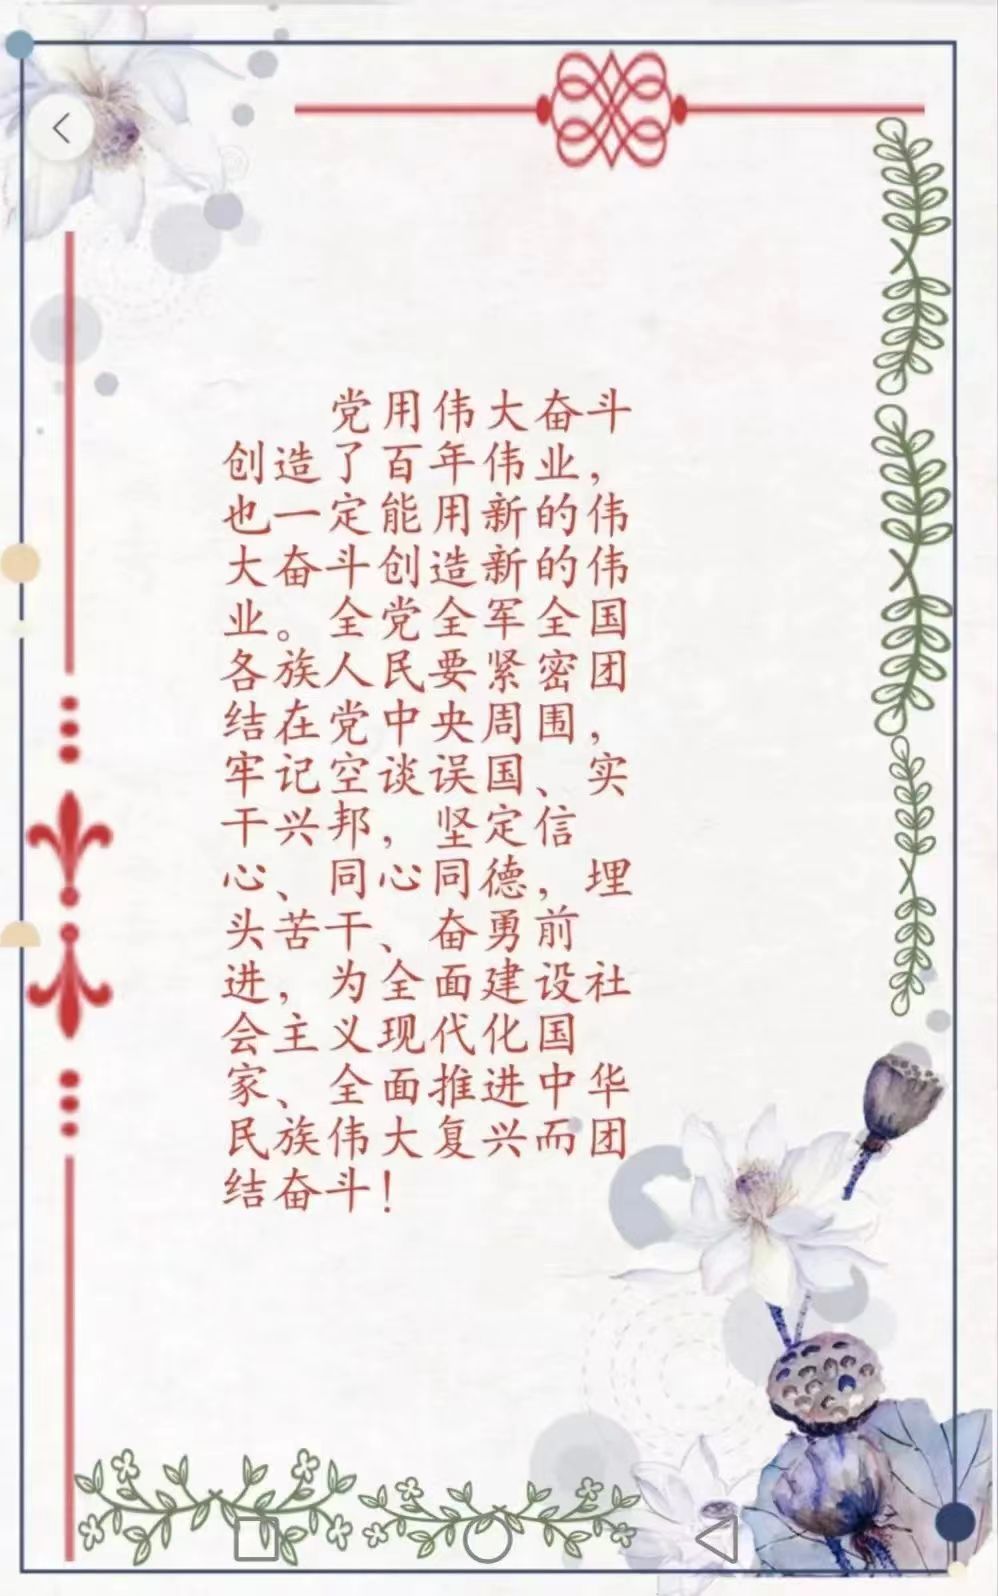 党用伟大奋斗
创造了百年伟业，
也一定能用新的伟
大奋斗创造新的伟
业。全党全军全国
各族人民要紧密团
结在党中央周围，
牢记空谈误国、实
干兴邦，坚定信
心、同心同德，埋
头苦干、奋勇前
进，为全面建设社
会主义现代化国
家、全面推进中华
民族伟大复兴而团
结奋斗！